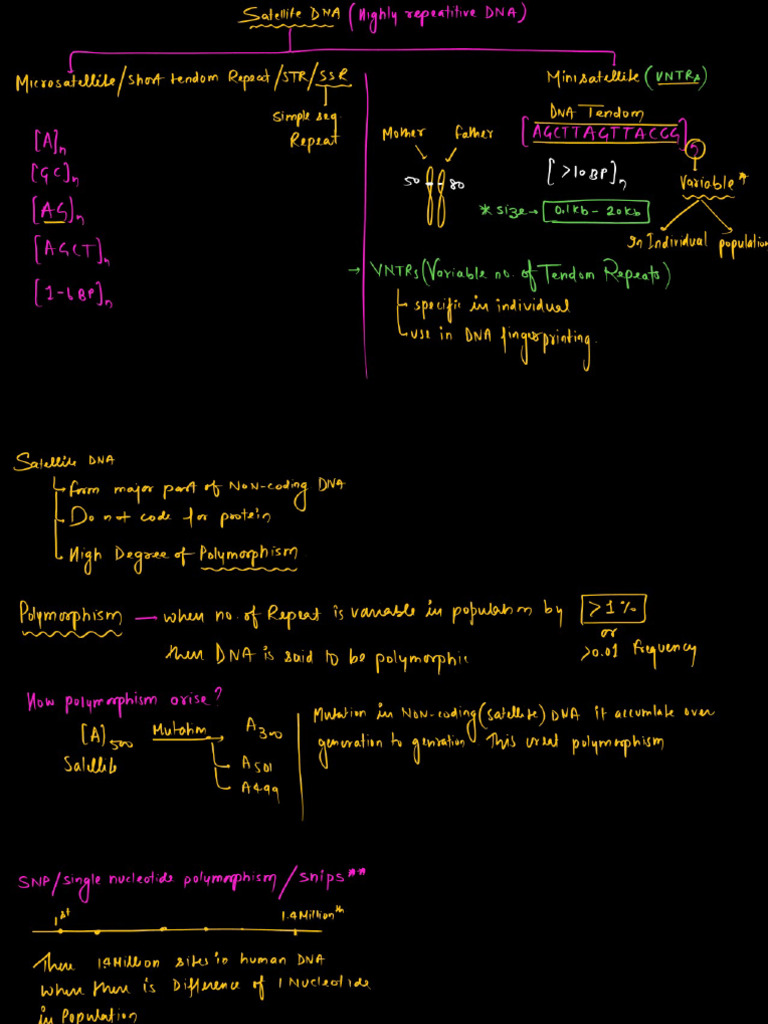 Satellite DNA (Highly repeatitive DNA)
Microsatellite/short tendom Repeat/STR/SSR
simple seq
Repeat
[A]n
[GC]n
[AG]n
[AGCT]n
[1-6BP]n
Minisatellite (VNTRs)
DNA Tendom
[AGCTTAGTTACGG]5
Mother father
50 80
[>10BP]n
Variable*
*size→ 0.1kb - 20kb
In Individual population
→ VNTRs (Variable no. of Tendom Repeats)
specific in individual
use in DNA fingerprinting.
Satellite DNA
form major part of Non-coding DNA
Do not code for protein
High Degree of Polymorphism
Polymorphism — when no. of Repeat is variable in population by >1%
or
then DNA is said to be polymorphic >0.01 frequency
How polymorphism arise?
[A]500 Mutation A300
Satellite
A501
A499
Mutation in Non-coding (satellite) DNA it accumlate over
generation to genration This creat polymorphism
SNP/single nucleotide polymorphism/snips**
1st 1.4 Million th
There 1.4 Million sites in human DNA
where there is Difference of 1 Nucleotide
in Population